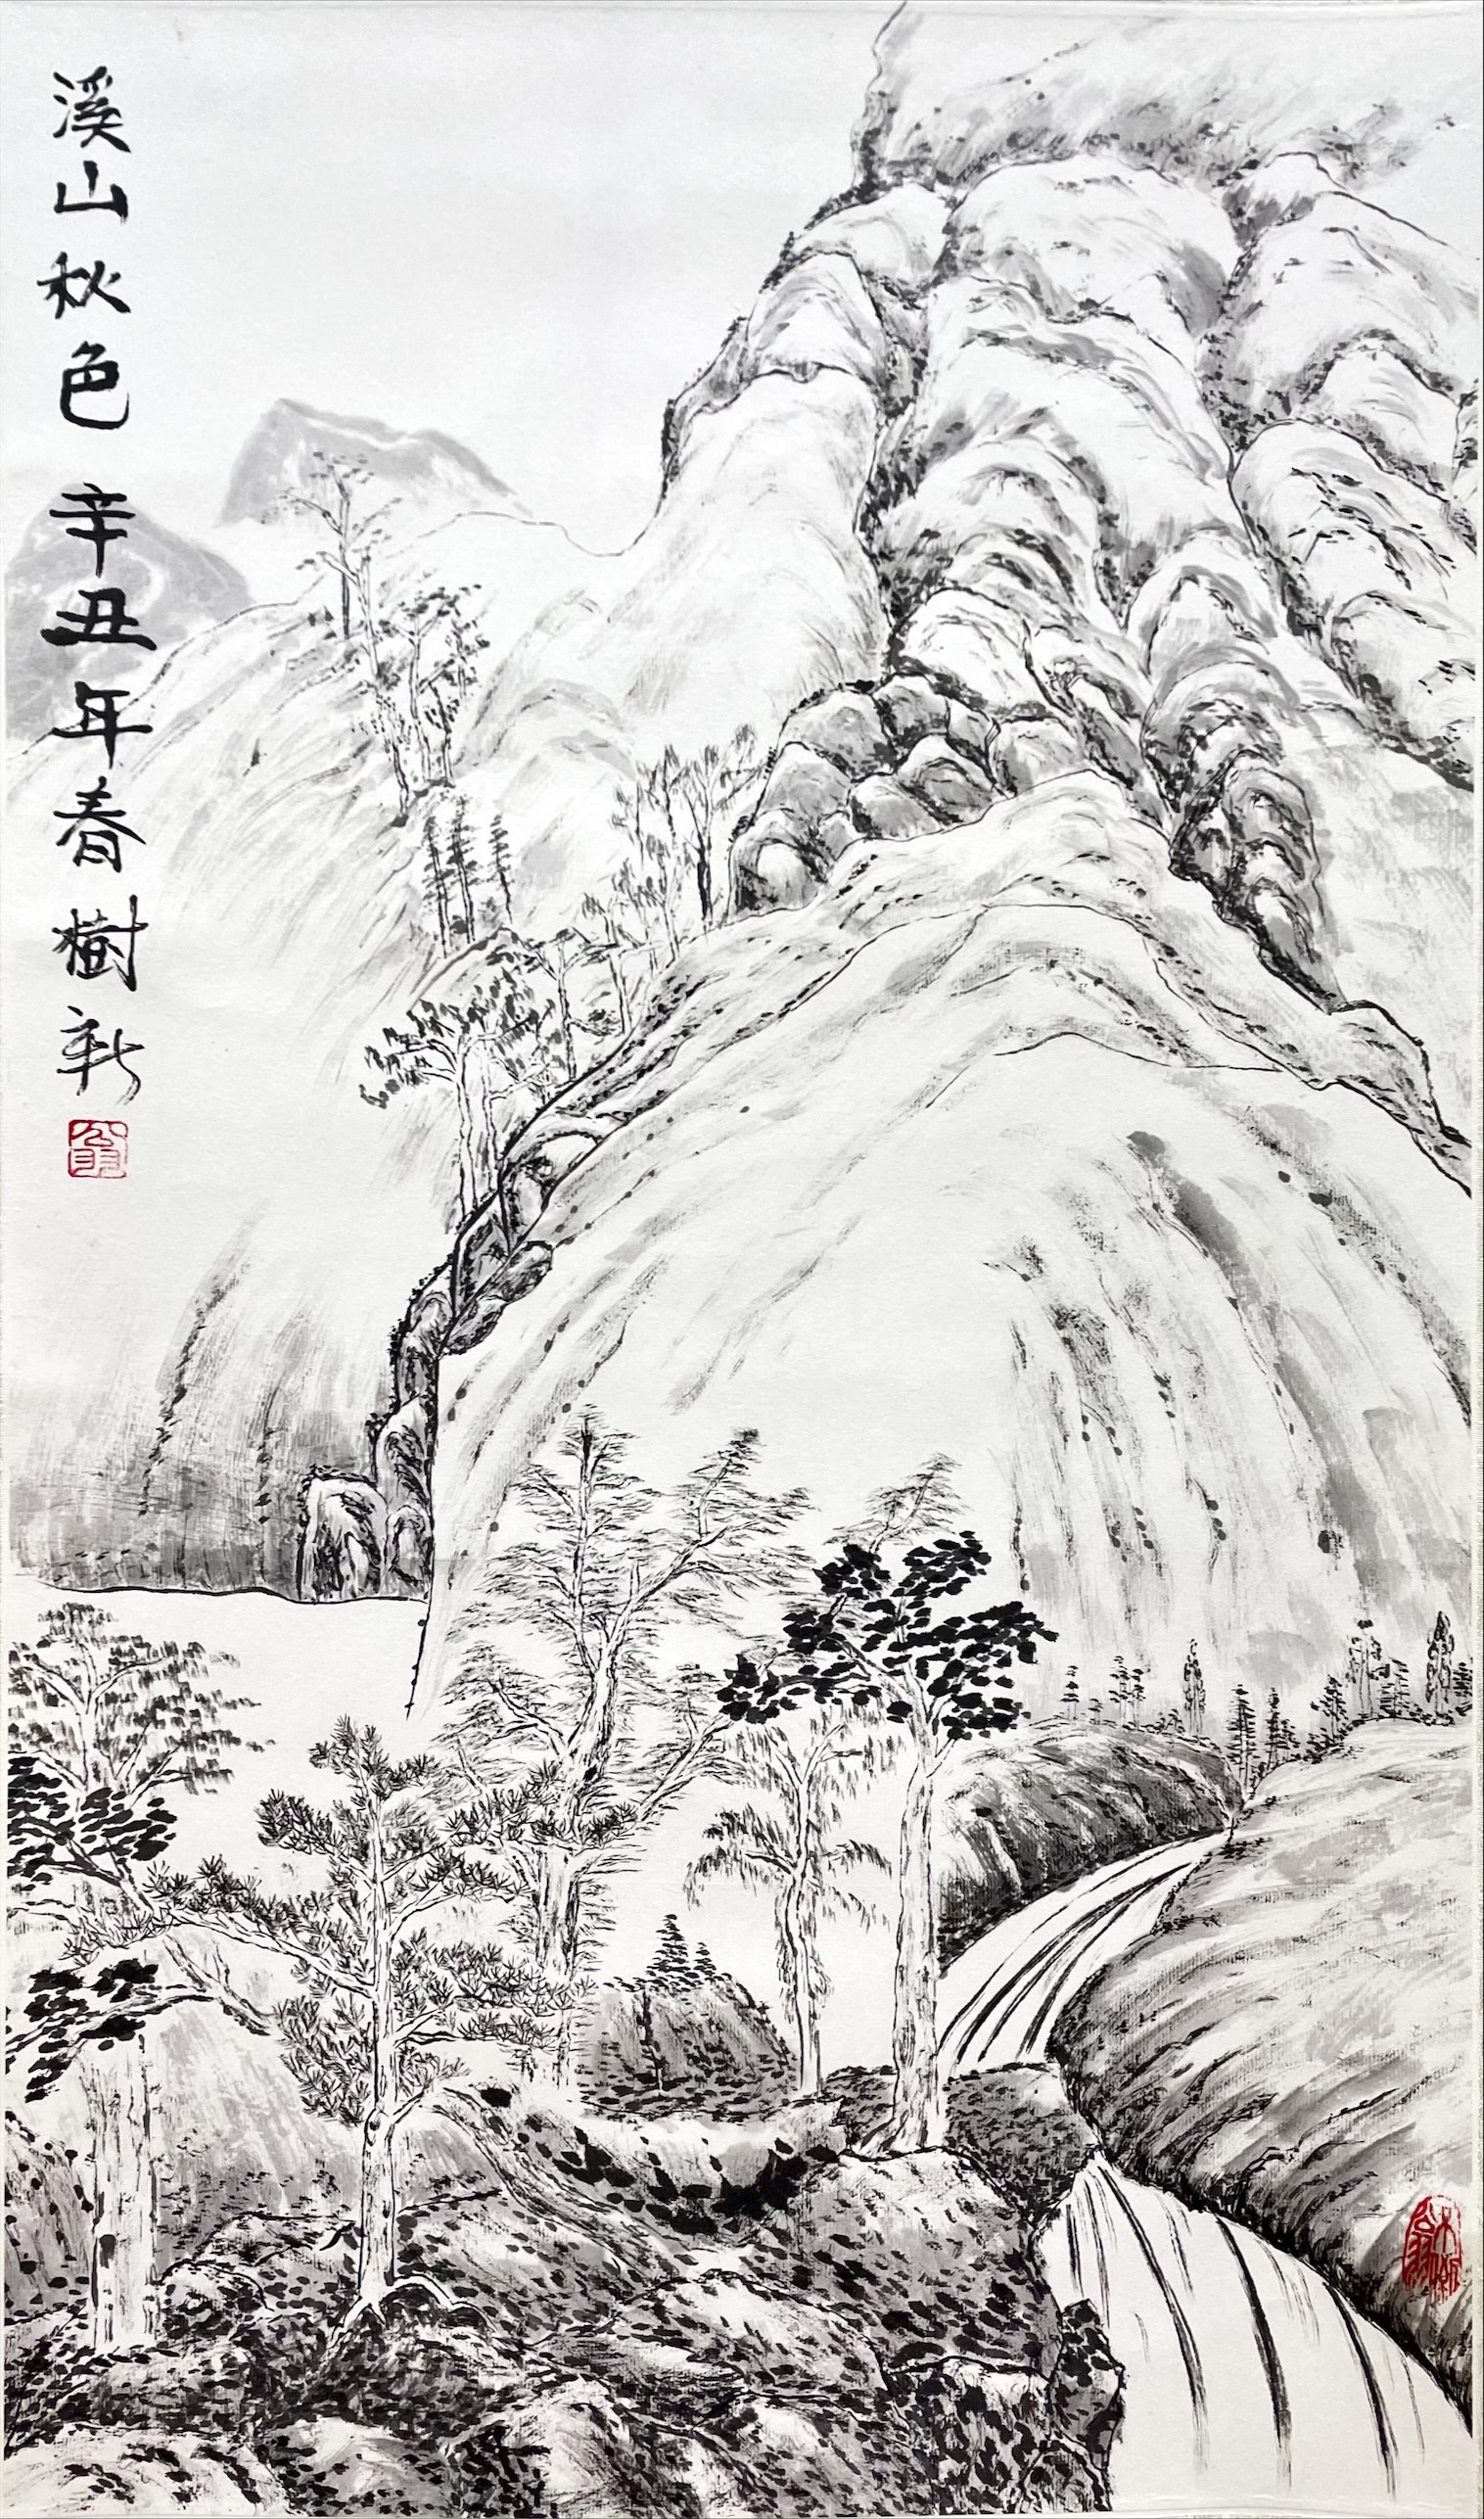 溪山秋色 辛丑年春樹新
翁